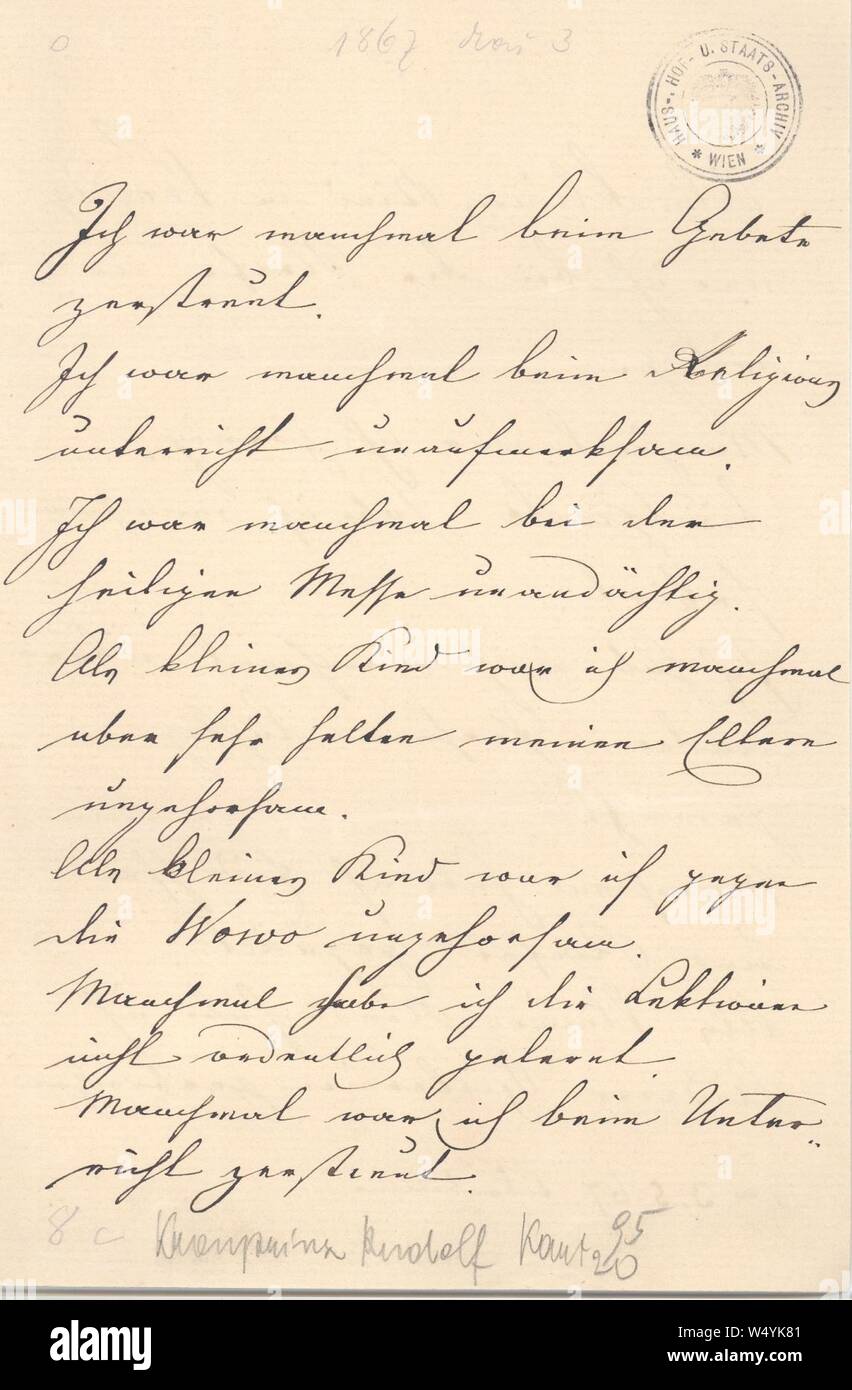 1867 Mai 3
HAUS-, HOF- U. STAATS-ARCHIV
* WIEN *
Ich war manchmal beim Gebete
zerstreut.
Ich war manchmal beim Religions
unterricht unaufmerksam.
Ich war manchmal bei der
heiligen Messe unandächtig.
Als kleines Kind war ich manchmal
aber sehr selten meinen Eltern
ungehorsam.
Als kleines Kind war ich gegen
die Wowo ungehorsam.
Manchmal habe ich die Lektionen
nicht ordentlich gelernt.
Manchmal war ich beim Unter-
richt zerstreut.
8 c Kronprinz Rudolf Kart 95
20
alamy
Image ID: W4YK81
www.alamy.com